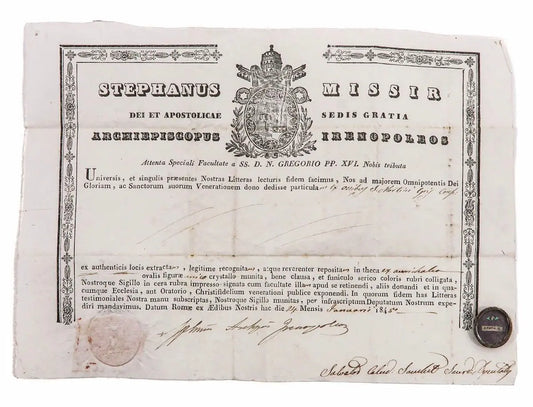 STEPHANUS MISSIR
DEI ET APOSTOLICAE SEDIS GRATIA
ARCHIEPISCOPUS IRENOPOLEOS
Attenta Speciali Facultate a SS. D. N. GREGORIO PP. XVI. Nobis tributa
Universis, et singulis præsentes Nostras Litteras lecturis fidem facimus, Nos ad majorem Omnipotentis Dei
Gloriam, ac Sanctorum suorum Venerationem dono dedisse particula
ex authenticis locis extracta, legitime recognita, atque reverenter reposita in theca
ovalis figuræ unico crystallo munita, bene clausa, et funiculo serico coloris rubri colligata,
Nostroque Sigillo in cera rubra impresso signata cum facultate illa apud se retinendi, aliis donandi et in qua-
cumque Ecclesia, aut Oratorio, Christifidelium venerationi publice exponendi. In quorum fidem has Litteras
testimoniales Nostra manu subscriptas, Nostroque Sigillo munitas, per infrascriptum Deputatum Nostrum expe-
diri mandavimus. Datum Romæ ex Ædibus Nostris hac die Mensis Januarii